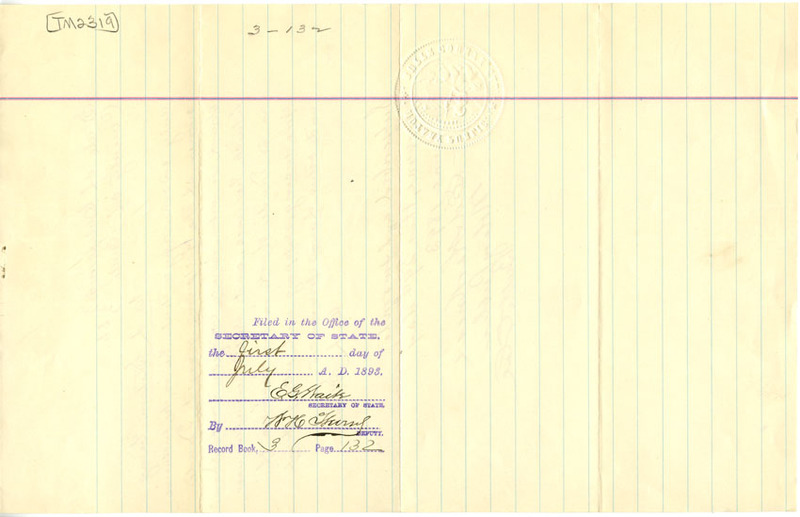 TM2319
3-132
Filed in the Office of the
SECRETARY OF STATE,
the first day of
July A. D. 1893.
E.G. Waite
SECRETARY OF STATE.
By W H
DEPUTY.
Record Book, 3 Page 132